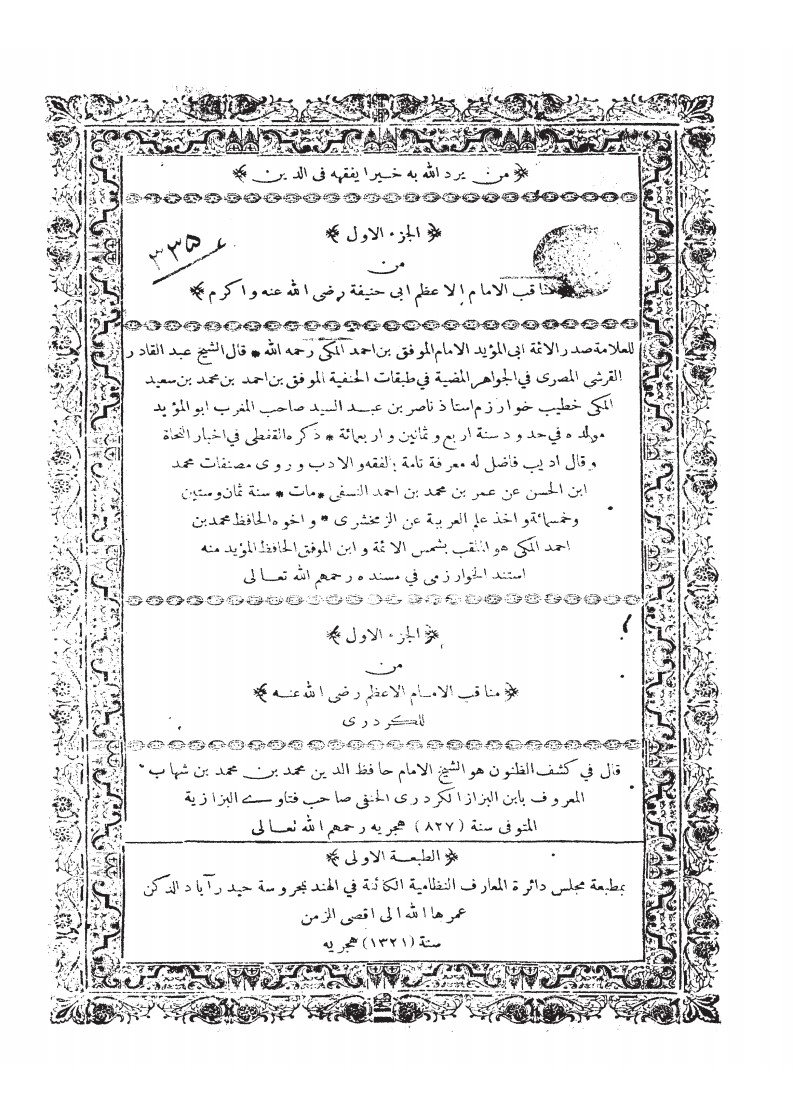 ﴿ من يرد الله به خيرا يفقهه فى الدين ﴾
﴿ الجزء الاول ﴾
٣٣۵
من
مناقب الامام الاعظم ابى حنيفة رضى الله عنه واكرم ﴾
للعلامة صدر الائمة ابى المؤيد الامام الموفق بن احمد المكى رحمه الله * قال الشيخ عبد القادر
القرشى المصرى في الجواهر المضية في طبقات الحنفية الموفق بن احمد بن محمد بن سعيد
المكى خطيب خوارزم استاذ ناصر بن عبد السيد صاحب المغرب ابو المؤيد
مولده في حدود سنة اربع وثمانين واربعمائة * ذكره القفطى في اخبار النحاة
وقال اديب فاضل له معرفة تامة بالفقه والادب وروى مصنفات محمد
ابن الحسن عن عمر بن محمد بن احمد النسفى * مات * سنة ثمان وستين
وخمسمائة واخذ علم العربية عن الزمخشرى * واخوه الحافظ محمد بن
احمد المكى هو الملقب بشمس الائمة وابن الموفق الحافظ المؤيد منه
استند الخوارزمى في مسنده رحمهم الله تعالى
﴿ الجزء الاول ﴾
من
﴿ مناقب الامام الاعظم رضى الله عنه ﴾
للكردرى
قال في كشف الظنون هو الشيخ الامام حافظ الدين محمد بن محمد بن شهاب
المعروف بابن البزاز الكردرى الحنفى صاحب فتاوے البزازية
المتوفى سنة (٨٢٧) هجريه رحمهم الله تعالى
﴿ الطبعة الاولى ﴾
بمطبعة مجلس دائرة المعارف النظامية الكائنة في الهند بمحروسة حيدرآباد الدكن
عمرها الله الى اقصى الزمن
سنة (١٣٢١) هجريه